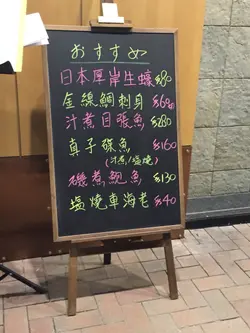 おすすめ
日本厚岸生蠔 $80
金線鯛刺身 $690
汁煮目張魚 $280
真子鰈魚 $160
(汁煮/塩燒)
磯煮鮑魚 $130
塩燒車海老 $40